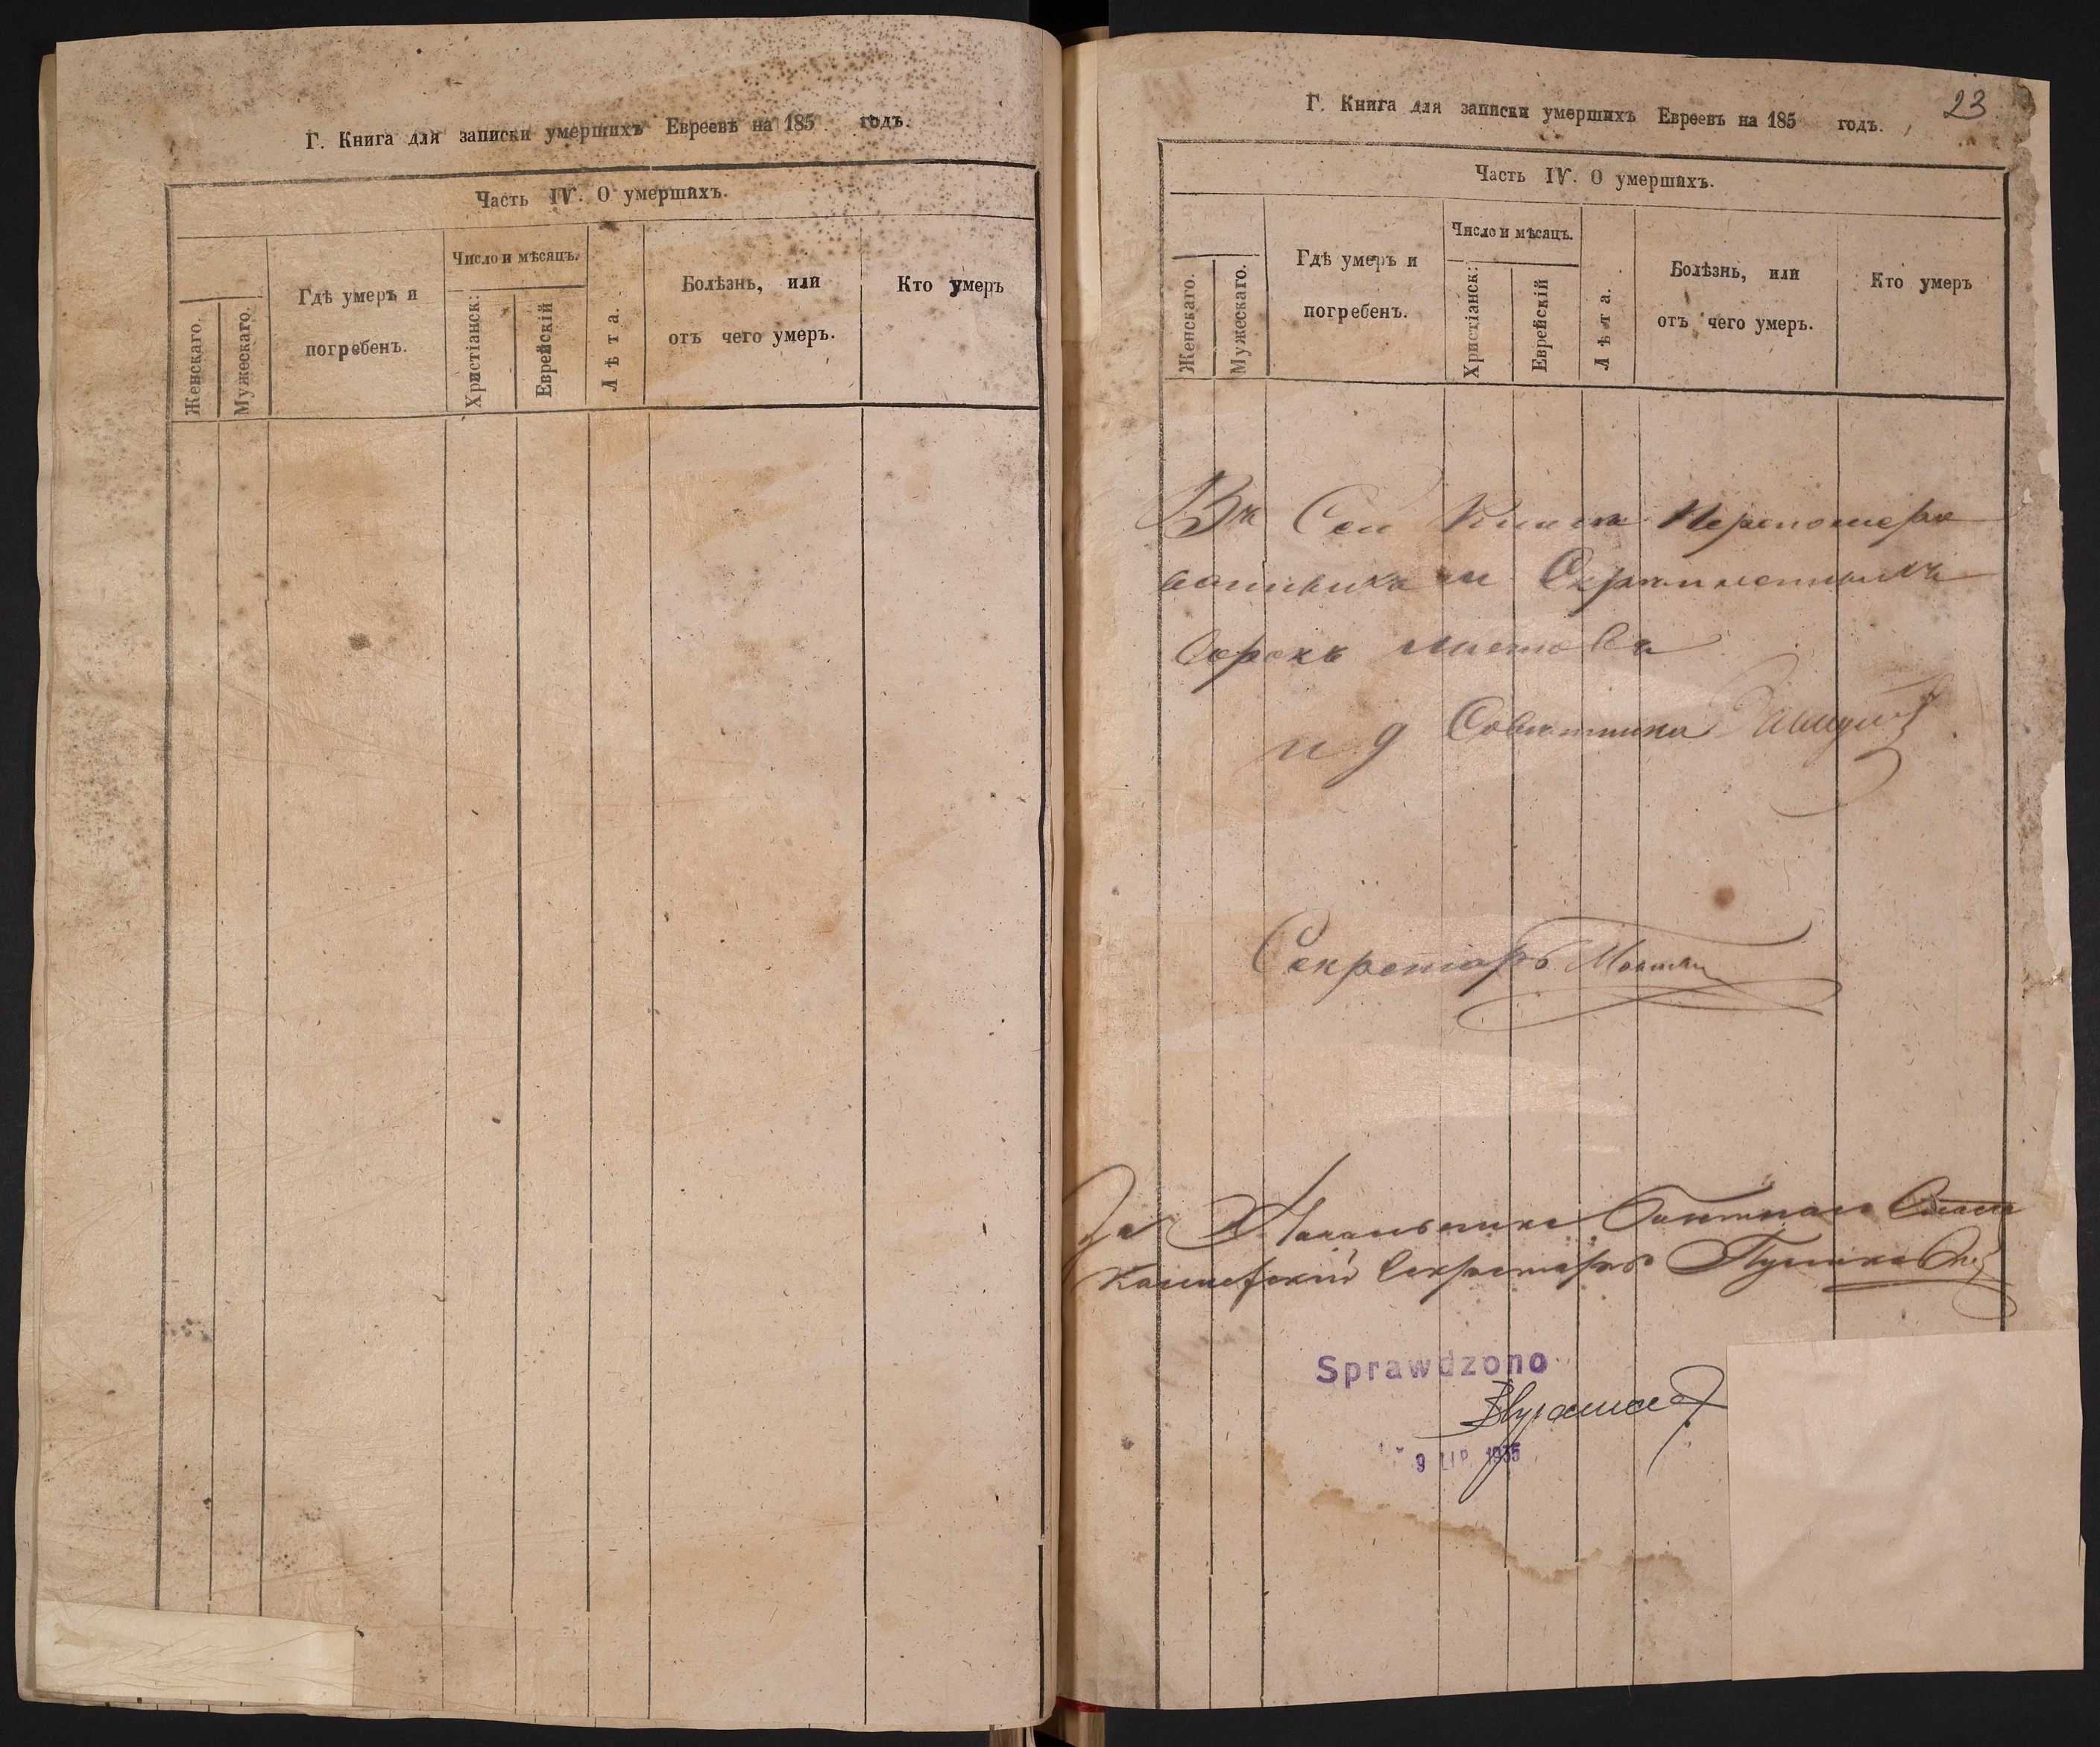 Г. Книга для записки умершихъ Евреевъ на 185 годъ.
Часть IV. О умершихъ.
Женскаго.
Мужескаго.
Гдѣ умеръ и
погребенъ.
Число и мѣсяцъ.
Христіанск:
Еврейскій
Лѣта.
Болѣзнь, или
отъ чего умеръ.
Кто умеръ
23
Г. Книга для записки умершихъ Евреевъ на 185 годъ.
Часть IV. О умершихъ.
Женскаго.
Мужескаго.
Гдѣ умеръ и
погребенъ.
Число и мѣсяцъ.
Христіанск:
Еврейскій
Лѣта.
Болѣзнь, или
отъ чего умеръ.
Кто умеръ
Въ Сей Книгѣ Перенумеро
ванныхъ и
Сорокъ листовъ
и д Совѣтника
Секретарь
За Начальника Стола
Секретарь
Sprawdzono
9 LIP. 1935